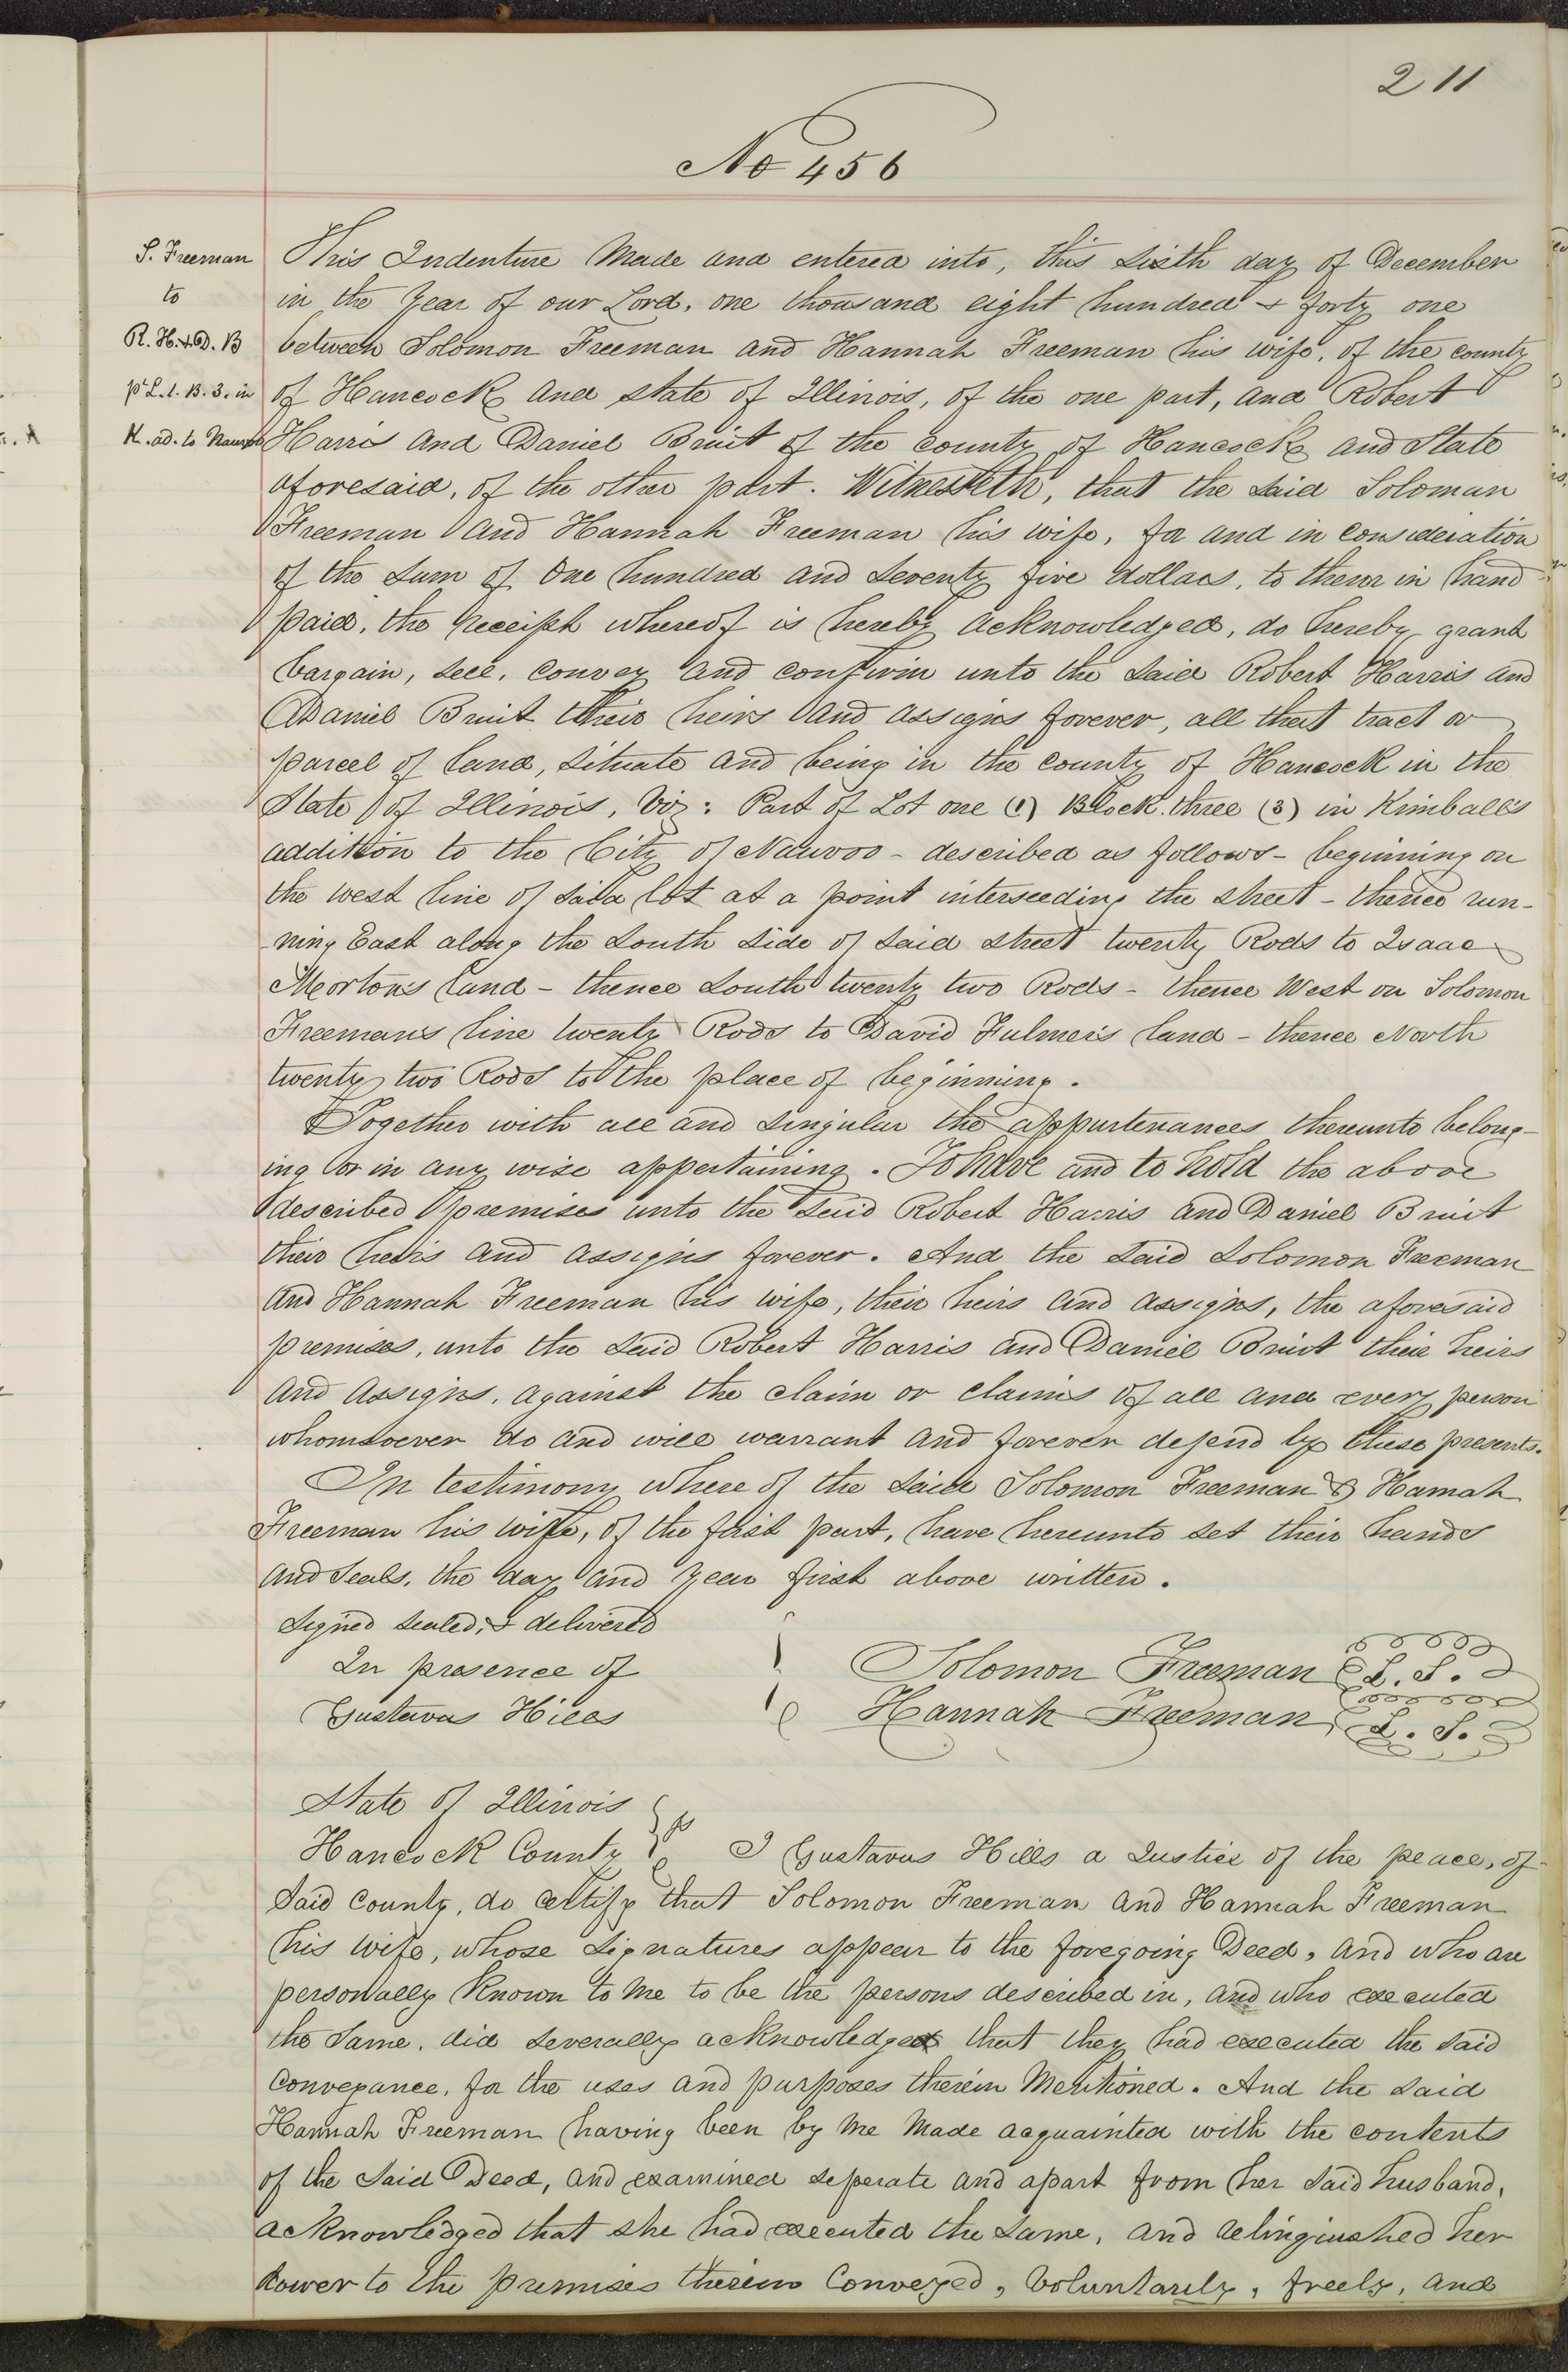 211
No 456
S. Freeman
to
R. H. & D. B
pt L. 1. B. 3. in
K. ad. to Nauvoo
This Indenture Made and entered into, this sixth day of December
in the Year of our Lord, one thousand eight hundred & forty one
between Solomon Freeman and Hannah Freeman his wife, of the county
of Hancock and state of Illinois, of the one part, and Robert
Harris and Daniel Bruit of the county of Hancock and State
aforesaid, of the other part. Witnesseth, that the said Soloman
Freeman and Hannah Freeman his wife, for and in consideration
of the sum of One hundred and seventy five dollars, to them in hand
paid, the receipt whereof is hereby acknowledged, do hereby grant
bargain, sell, convey and confirm unto the said Robert Harris and
Daniel Bruit their heirs and assigns forever, all that tract or
parcel of land, situate and being in the county of Hancock in the
State of Illinois, Viz: Part of Lot one (1) Block three (3) in Kimball's
addition to the City of Nauvoo - described as follows - beginning on
the west line of said lot at a point interseeding the street - thence run-
ning East along the South side of said street twenty Rods to Isaac
Morton's land - thence South twenty two Rods - thence West on Solomon
Freeman's line twenty Rods to David Fulmer's land - thence North
twenty two Rods to the place of beginning.
Together with all and singular the appurtenances thereunto belong-
ing or in any wise appertaining. To have and to hold the above
described premises unto the said Robert Harris and Daniel Bruit
their heirs and assigns forever. And the said Solomon Freeman
and Hannah Freeman his wife, their heirs and assigns, the aforesaid
premises, unto the said Robert Harris and Daniel Bruit their heirs
and assigns, against the claim or claims of all and every person
whomsoever do and will warrant and forever defend by these presents.
In testimony where of the said Solomon Freeman & Hannah
Freeman his wife, of the first part, have hereunto set their hands
and seals, the day and year first above written.
Signed sealed, & delivered
In presence of
Gustavus Hills
Solomon Freeman L. S.
Hannah Freeman L. S.
State of Illinois
Hancock County } ss I Gustavus Hills a Justice of the peace, of
said County, do certify that Solomon Freeman and Hannah Freeman
his wife, whose signatures appear to the foregoing Deed, and who are
personally known to me to be the persons described in, and who executed
the same, did severally acknowledged that they had executed the said
conveyance, for the uses and purposes therein mentioned. And the said
Hannah Freeman having been by me made acquainted with the contents
of the said Deed, and examined seperate and apart from her said husband,
acknowledged that she had executed the same, and relinquished her
dower to the premises therein Conveyed, Voluntarily, freely, and